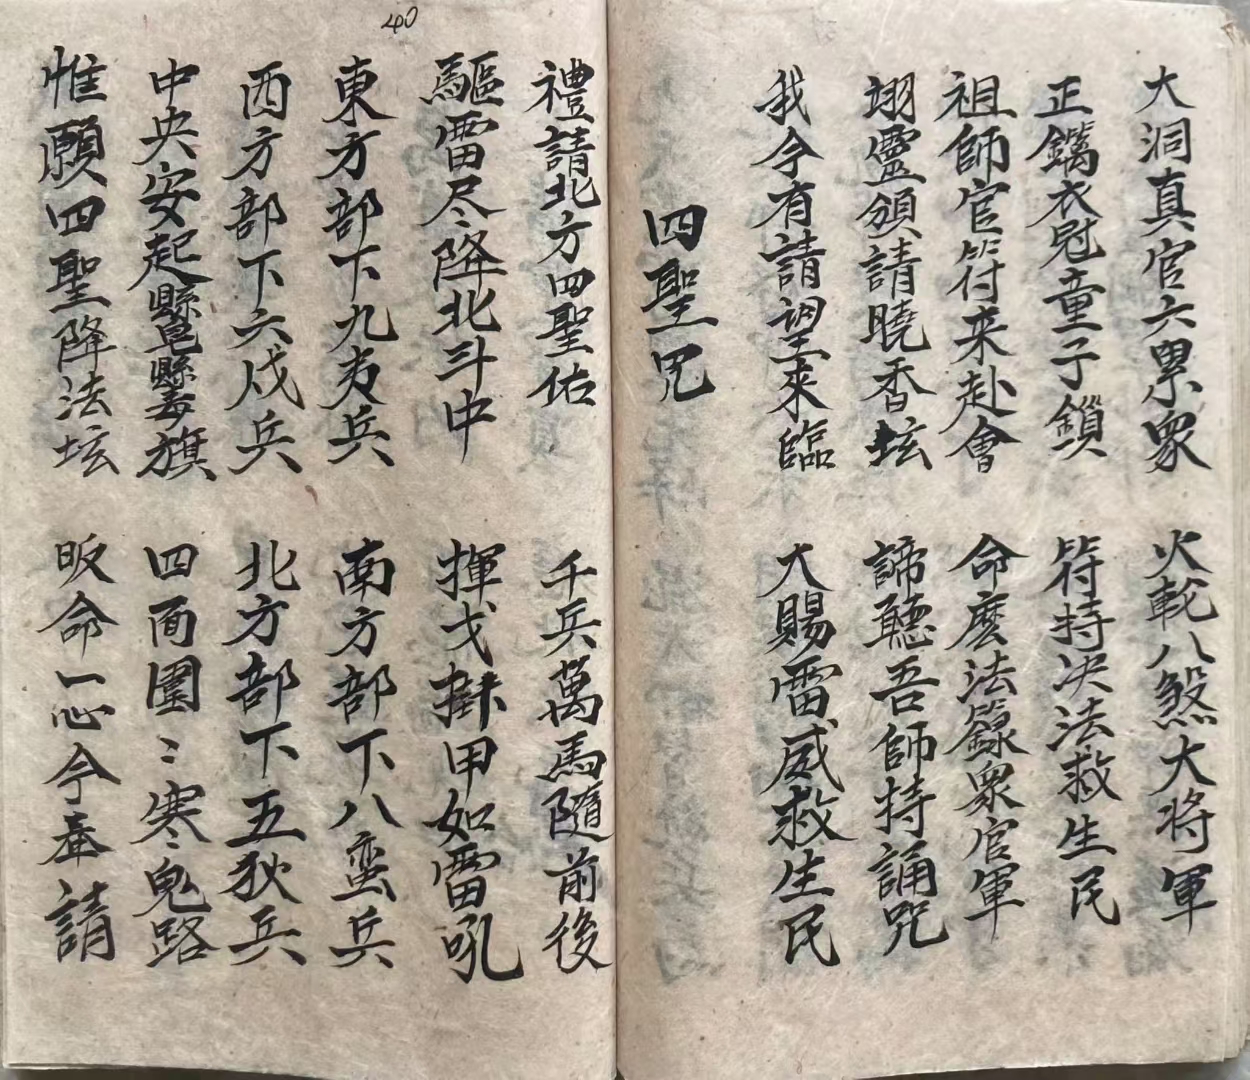 大洞真官六界眾 火乾八煞大将軍
正鑴衣尅童子鎖 符持决法救生民
祖師官符来赴會 命麽法籙眾官軍
翊靈頒請曉香坛 諦聽吾師持誦咒
我今有請望来臨 大賜雷威救生民
四聖咒
禮請北方四聖佑 千兵萬馬隨前後
驅雷尽降北斗中 揮戈掛甲如雷吼
東方部下九夷兵 南方部下八蛮兵
西方部下六戎兵 北方部下五狄兵
中央安起 旗 四面圍〻寒鬼路
惟願四聖降法坛 皈命一心今奉請
40